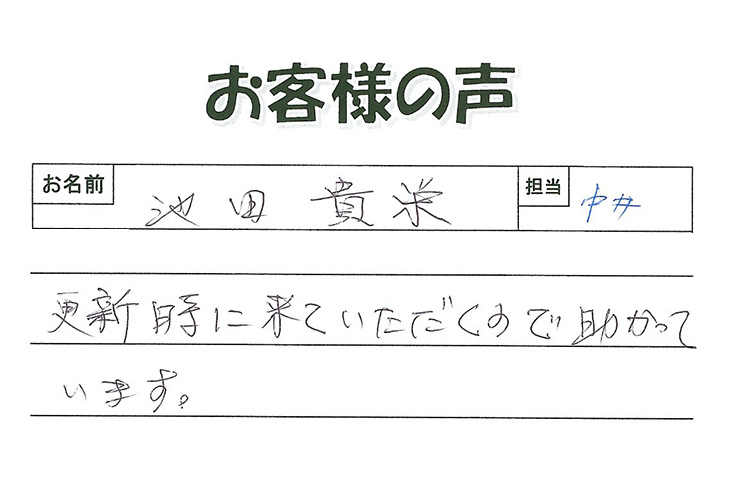 お客様の声
お名前 池田 貴栄 担当 中井
更新時に来ていただくので助かって
います。